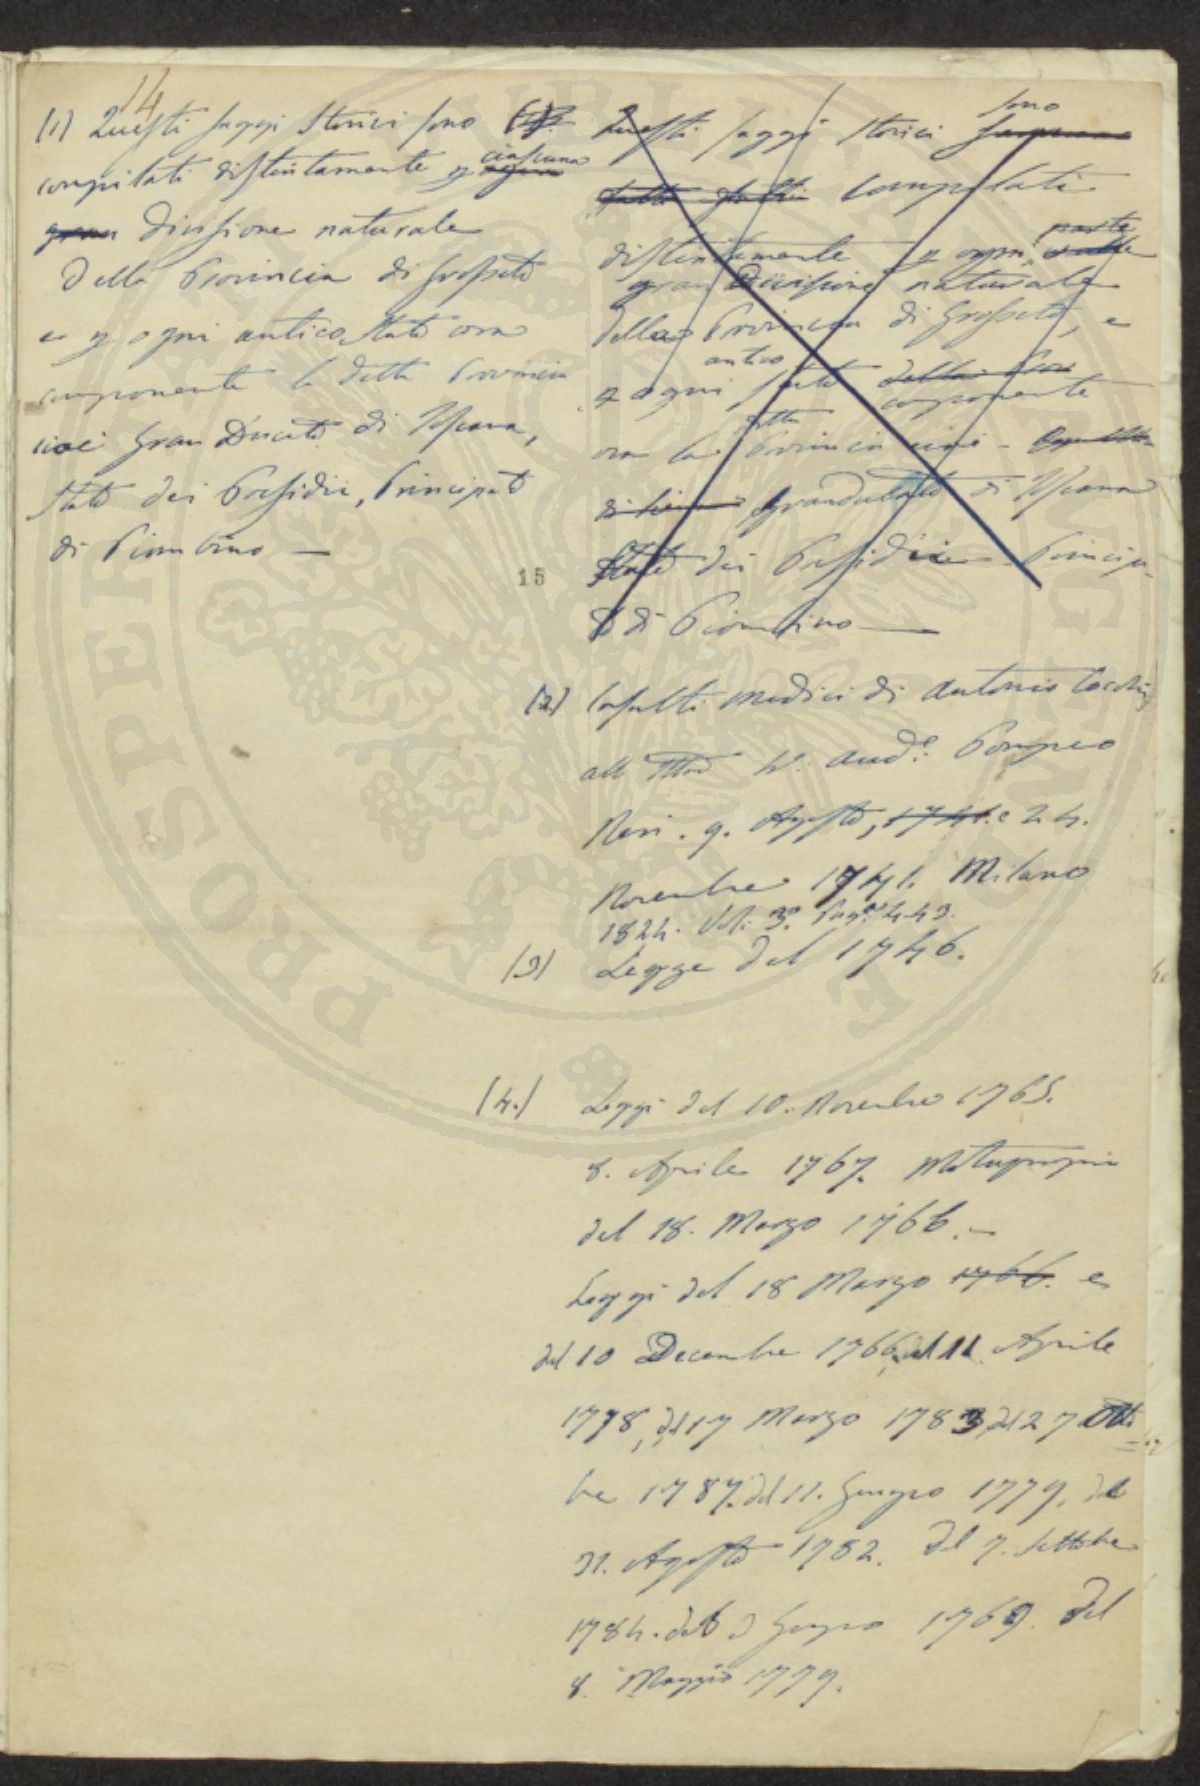 14
(1) Questi saggi Storici sono
compilati distintamente p ciascuna
gran divisione naturale
della Provincia di Grosseto
e p ogni antico Stato ora
componente la detta Provincia
cioè Gran Ducato di Toscana,
Stato dei Presidii, Principato
di Piombino —
15
(1). Questi saggi storici sono
compilati
distintamente p ogni parte
gran Divisione naturale
della Provincia di Grosseto, e
p ogni antico stato componente
ora la detta Provincia cioè -
Granducato di Toscana
Stato dei Presidii Princip-
to di Piombino —
(2) Consulti medici di Antonio Cocchi
all Illmo Sr. Aud.e Pompeo
Neri. 9. Agosto, 1741. e 24.
Novembre 1741. Milano
1824. Vol. 3o. Pag. 443.
(3) Legge del 1746.
(4.) Leggi del 10. Novembre 1765.
8. Aprile 1767. Motuproprio
del 18. Marzo 1766. —
Leggi del 18 Marzo 1766. e
del 10 Decembre 1766, del 11. Aprile
1778, del 17 Marzo 1783, del 27 Otto
bre 1787. del 11. Giugno 1779, del
31. Agosto 1782. del 7. Settembre
1784. del 3 Giugno 1769. del
8. Maggio 1779.
PROSPER